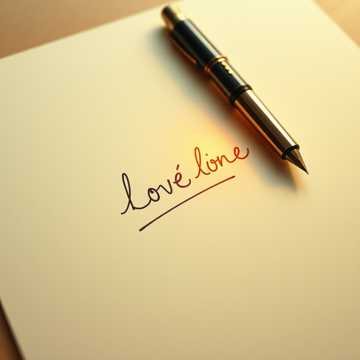 Lové line